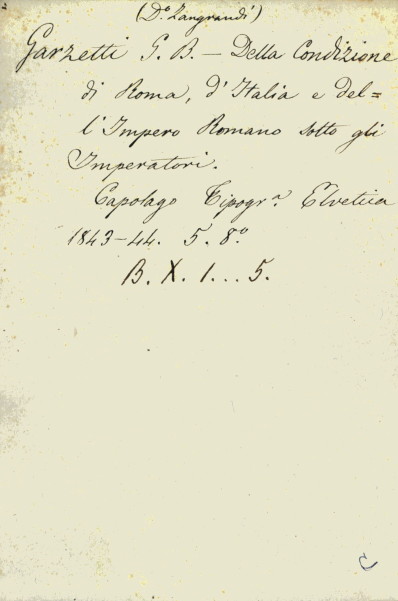 (D.º Zangrandi)
Garzetti G. B. — Della Condizione
di Roma, d'Italia e del=
l'Impero Romano sotto gli
Imperatori.
Capolago Tipogr.ª Elvetica
1843-44. 5. 8.º
B. X. 1... 5.
C